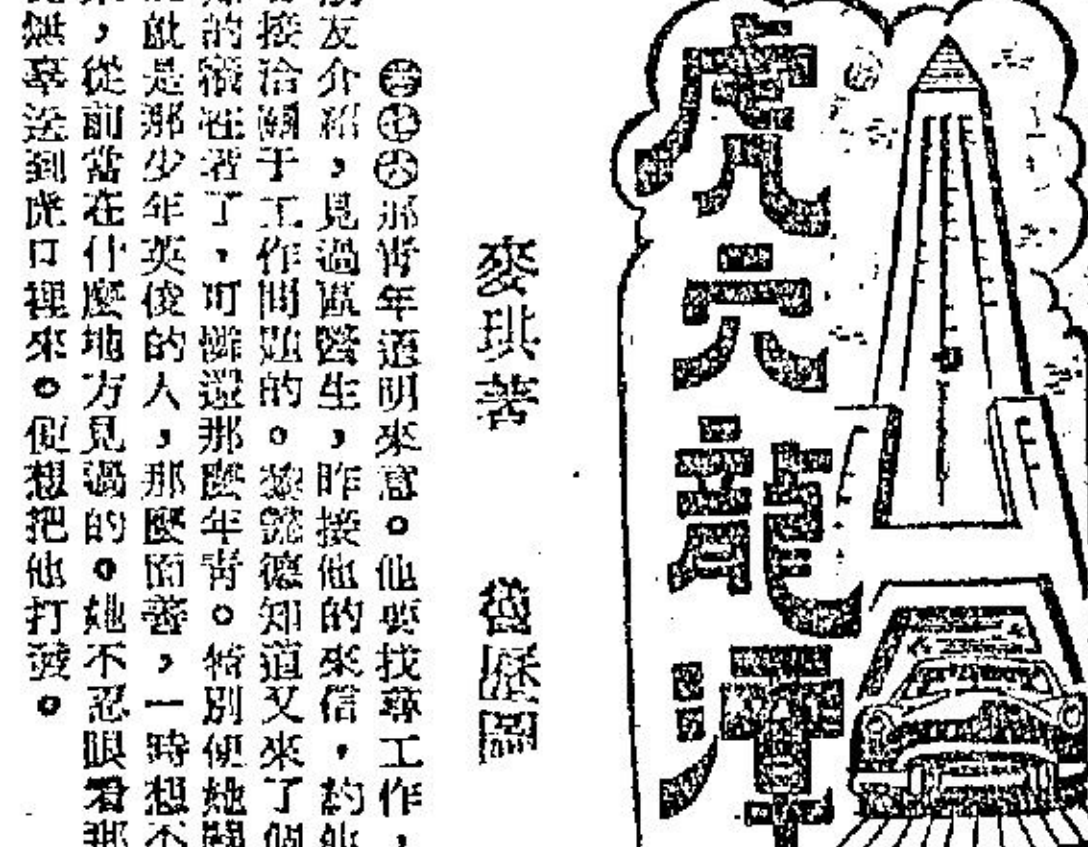 虎穴龍潭
麥珙著　圖
七六那青年道明來意。他要找尋工作，
友介紹，見過區醫生，昨接他的來信，約他
接洽關于工作問題的。德知道又來了個
的犧牲者了，可憐還那麼年青。特別使她關
就是那少年英俊的人，那麼面善，一時想不
，從前當在什麼地方見過的。她不忍眼看那
送到虎口裡來。便想把他打發。